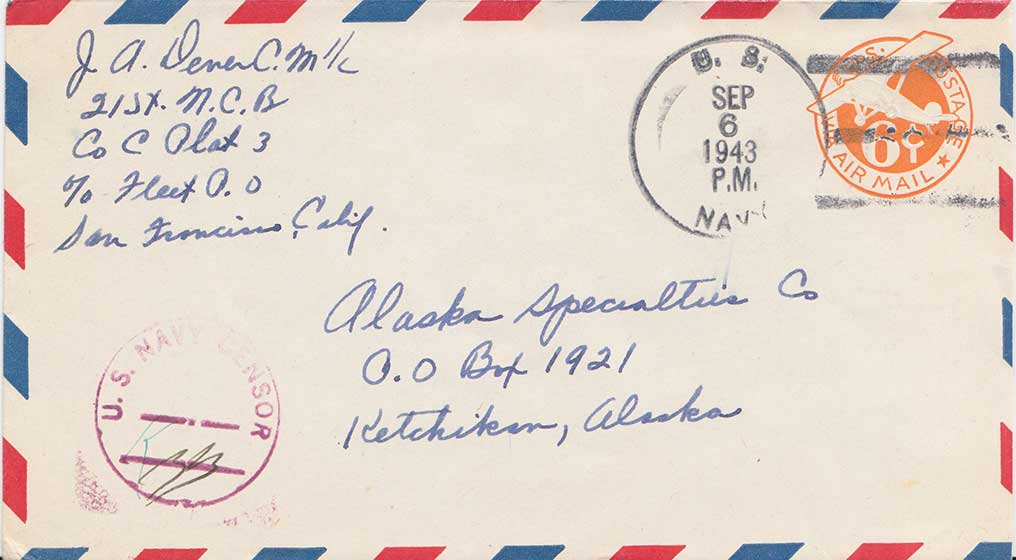 J. A. Dever C.M 1/c
21st. N.C.B
Co C Plat 3
℅ Fleet P.O
San Francisco, Calif.
U. S.
SEP
6
1943
P.M.
NAVY
U.S. POSTAGE
6¢
VIA AIR MAIL
Alaska Specialties Co
P.O Box 1921
Ketchikan, Alaska
U.S. NAVY CENSOR